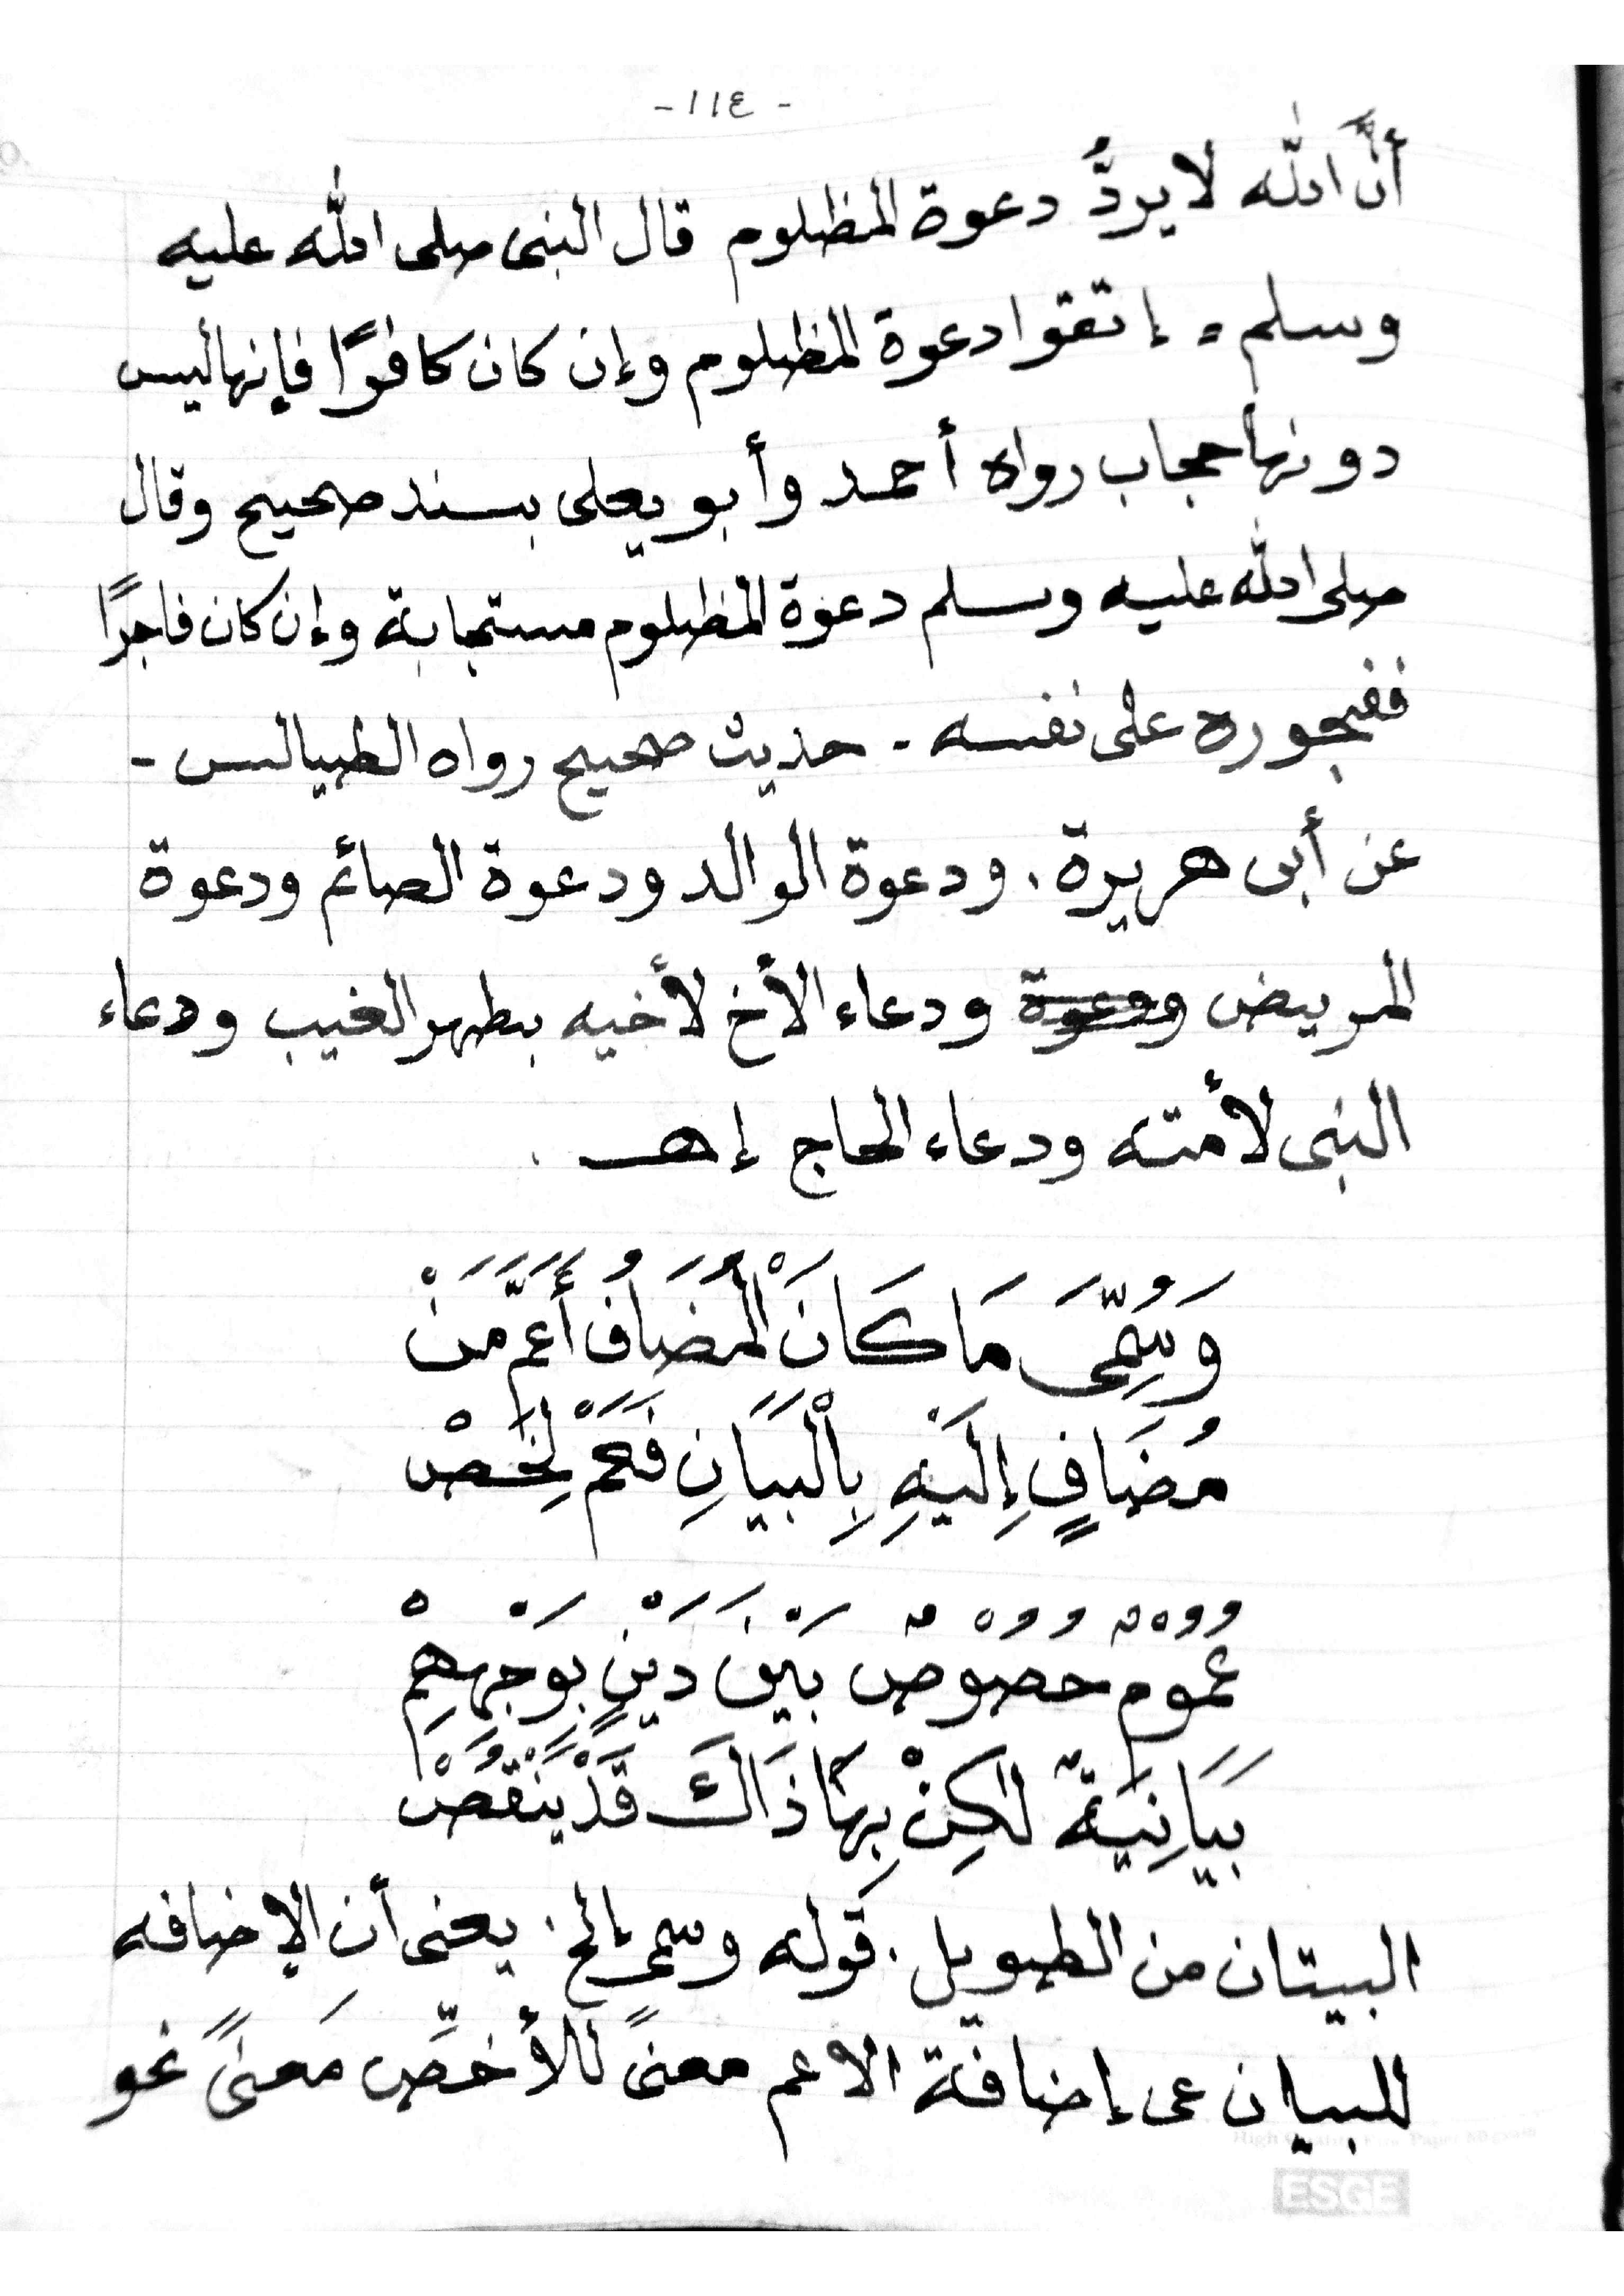 -١١٤-
أنَّ الله لا يردُّ دعوة المظلوم قال النبى صلى الله عليه
وسلم = إتقوا دعوة المظلوم وإن كان كافرًا فإنها ليس
دونها حجاب رواه أحمد وأبو يعلى بسند صحيح وقال
صلى الله عليه وسلم دعوة المظلوم مستجابة وإن كان فاجرًا
ففجوره على نفسه - حديث صحيح رواه الطيالس -
عن أبى هريرة . ودعوة الوالد ودعوة الصائم ودعوة
المريض ودعاء الأخ لأخيه بظهر الغيب ودعاء
النبى لأمته ودعاء الحاج إهـ .
وَسُمِّىَ مَا كَانَ الْمُضَافُ أَعَمَّ مَنْ
مُضَافٍ إِلَيْهِ بِالْبَيَانِ فَعَمْ لِخَصْ
عُمُومٌ خُصُوْصٌ بَيْنَ دَيْنٍ بِوَجْهِهِمْ
بَيَانِيَةٌ لٰكِنْ بِهَا ذَاكَ قَدْ يَنْقُصْ
البيتان من الطويل . قوله وسمى إلخ . يعنى أن الإضافه
للبيان هى إضافة الاعم معنىً للأخصِّ مَعنىً نحو
High Quality Paper
ESGE